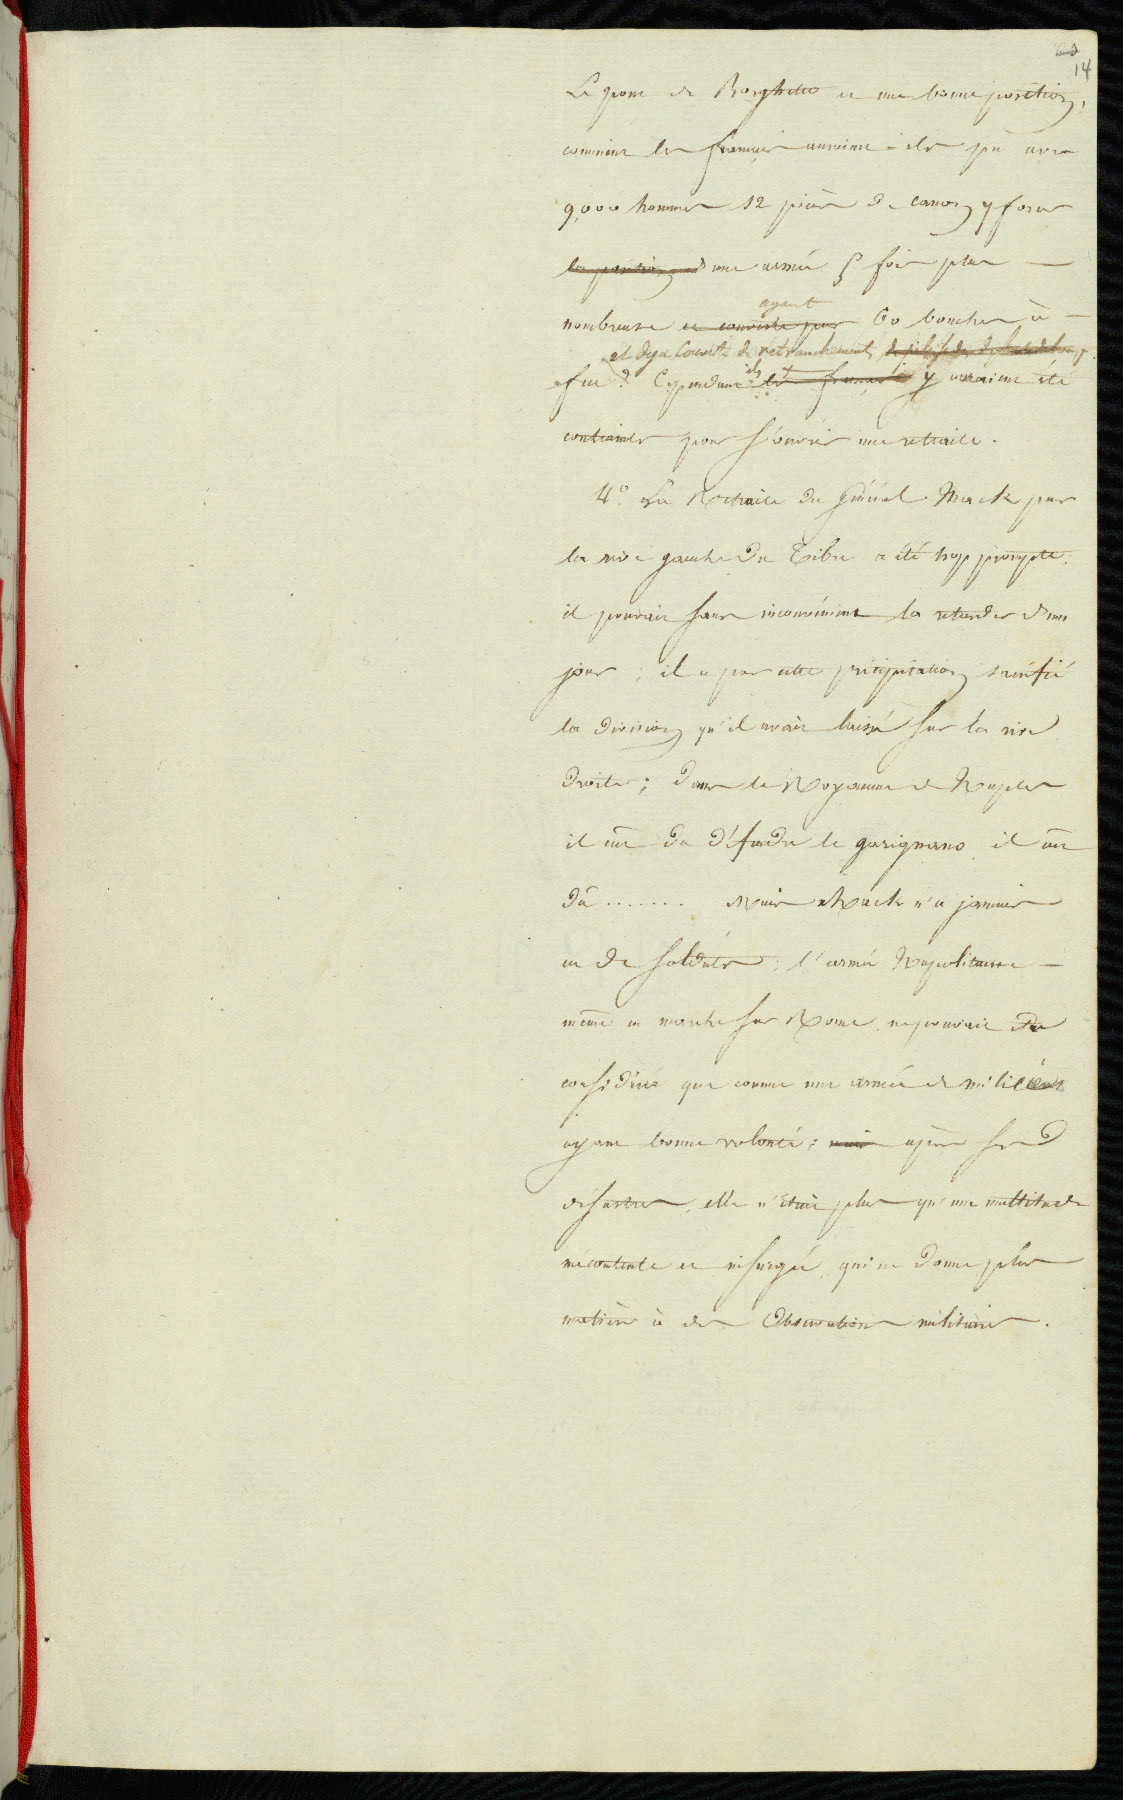 14
Le pont de Borghetto est une bonne position,
comment les français auraient-ils pu avec
9,000 hommes 12 pièces de canon y forcer
la position d'une armée 5 fois plus
nombreuse et couverte par ayant 60 bouches à
et deja couverte de retranchements
feu ? Cependant ils les français y auraient été
contraints pour s'ouvrir une retraite.
4° La Retraite du Général Mack par
la rive gauche du Tibre a été trop prompte;
il pouvait sans inconvénient la retarder d'un
jour; il a par cette précipitation sacrifié
la division qu'il avait laissé sur la rive
droite; dans le Royaume de Naples
il eut du défendre le garignano il eut
dû ....... Mais Mack n'a jamais
eu de soldats; l'armée Napolitaine
même en marche sur Rome ne pouvait être
considérée que comme une armée de miliciens
ayant bonne volonté; mais après ses
désastres, elle n'était plus qu'une multitude
mécontente et insurgée qui ne donne plus
matière à des Observations militaires.